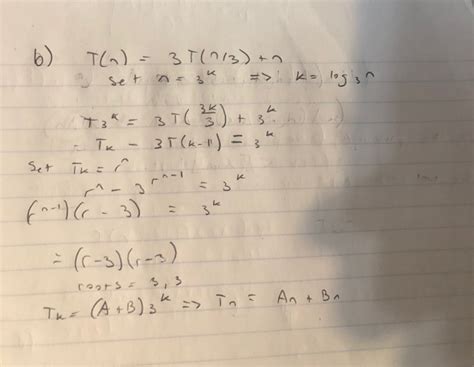 b) T(n) = 3T(n/3) + n
Set n = 3^k => k = log_3 n
T3^k = 3T(3k/3) + 3^k
T_k - 3T(k-1) = 3^k
Set T_k = r^n
r^n - 3^{r^{n-1}} = 3^k
(r^{n-1})(r - 3) = 3^k
= (r-3)(r-3)
roots = 3, 3
T_k = (A + B)3^k => T_n = An + Bn